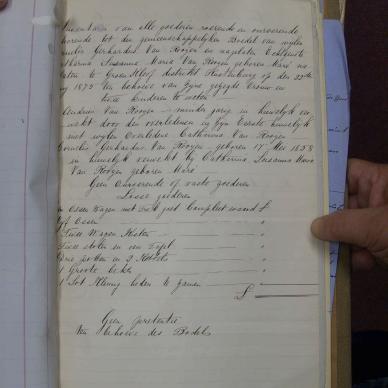 Inventaris van alle goederen roerende en onroerende
hoorende tot den gemeenschappelijken Boedel van wijlen
Gerhardus Van Rooyen en nagelaten Echtgenote
Susanna Maria Van Rooyen geboren Maré na
te Groen Kloof distrikt Rustenburg op den 22ste
1875 Ten behoeve van zijne gezegde Vrouw en
twee kinderen te weten
Andries Van Rooyen minder jarig in huwelijk ver
wekt door den overledenen in zijn Eerste huwelijk
met wijlen Catharina Van Rooyen
Cornelis Gerhardus Van Rooyen geboren 17 Mei 1858
in huwelijk verwekt bij Catharina Susanna Maria
Van Rooyen geboren Maré
Geen Onroerende of vaste goederen
Losse goederen
Ossen Wagen met Trek goed Compleet waard £
Ossen
Twee Wagen Kisten
Twee stolen en een Tafel
potten en 2 Ketels
1 Groote
1 Lot Kleinigheden te zamen
£
Geen pretentie
Ten behoeve des Boedels